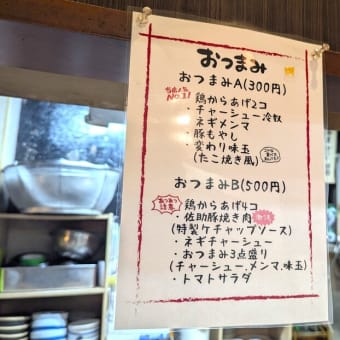 おつまみ
おつまみA(300円)
当店人気
NO.1!
・鶏からあげ2コ
・チャーシュー冷奴
・ネギメンマ
・豚もやし
・変わり味玉
(たこ焼き風)
おつまみB(500円)
あつあつ
注意
・鶏からあげ4コ
・佐助豚焼き肉
(特製ケチャップソース)
・ネギチャーシュー
・おつまみ3点盛り
(チャーシュー、メンマ、味玉)
・トマトサラダ